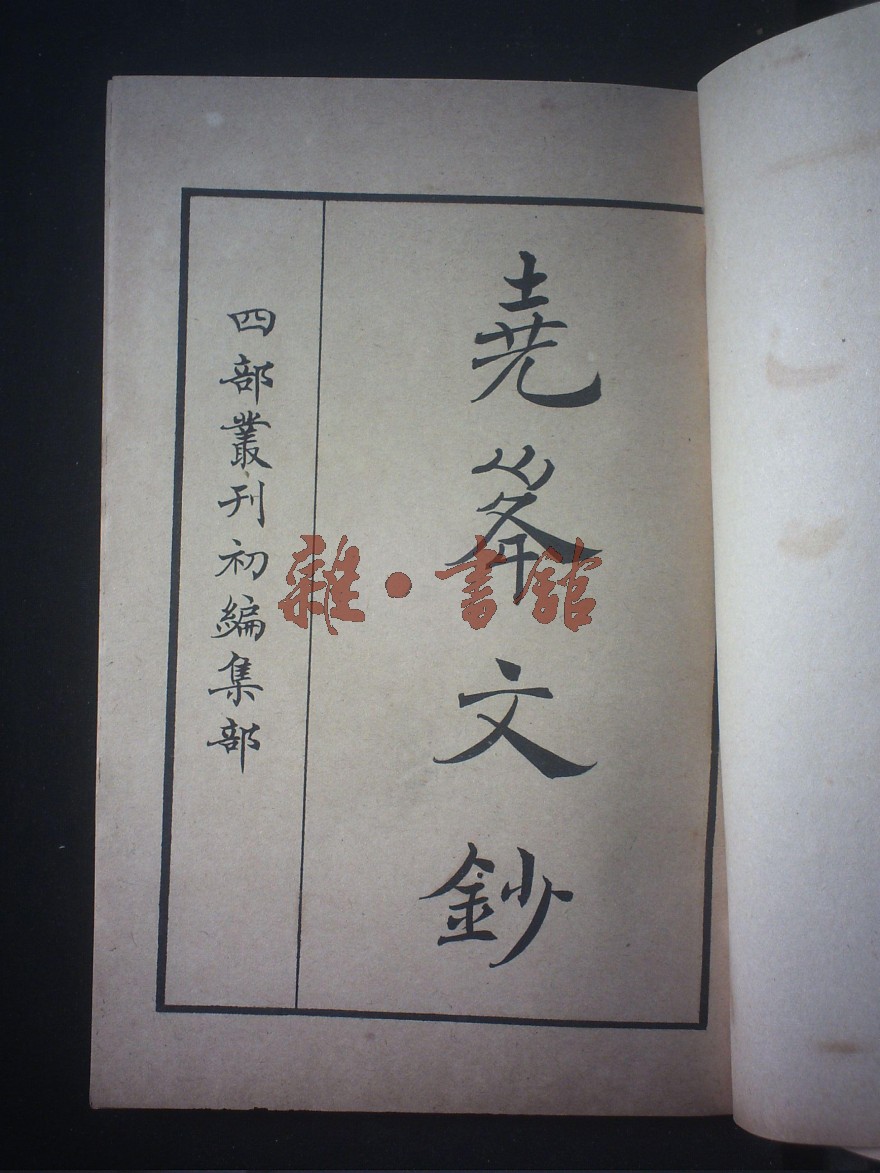 堯峯文鈔
四部叢刊初編集部
雜·書館